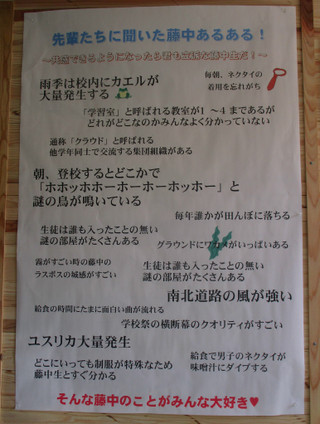 先輩たちに聞いた藤中あるある！
～共感できるようになったら君も立派な藤中生だ！～
雨季は校内にカエルが
大量発生する
毎朝、ネクタイの
着用を忘れがち
「学習室」と呼ばれる教室が1～4まであるが
どれがどこなのかみんなよく分かっていない
通称「クラウド」と呼ばれる
他学年同士で交流する集団組織がある
朝、登校するとどこかで
「ホホッホホーホーホーホッホー」と
謎の鳥が鳴いている
毎年誰かが田んぼに落ちる
生徒は誰も入ったことの無い
謎の部屋がたくさんある
グラウンドにワカメがいっぱいある
霧がすごい時の藤中の
ラスボスの城感がすごい
生徒は誰も入ったことの無い
謎の部屋がたくさんある
南北道路の風が強い
給食の時間にたまに面白い曲が流れる
学校祭の横断幕のクオリティがすごい
ユスリカ大量発生
どこにいっても制服が特殊なため
藤中生とすぐ分かる
給食で男子のネクタイが
味噌汁にダイブする
そんな藤中のことがみんな大好き♥